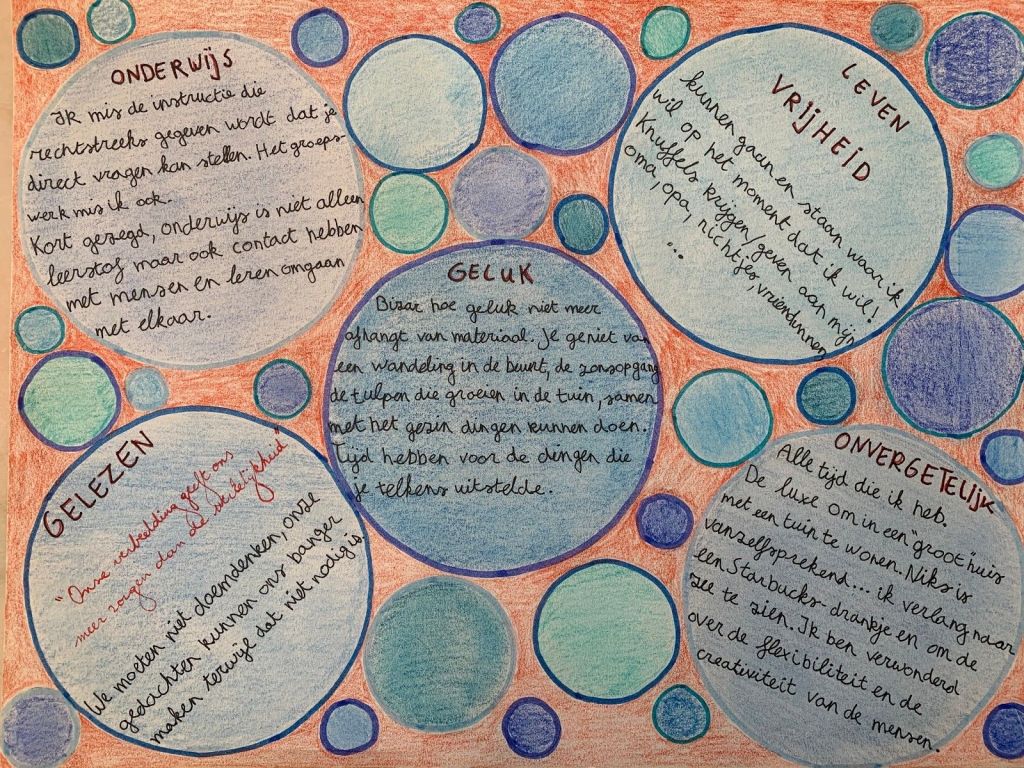 ONDERWIJS
Ik mis de instructie die
rechtstreeks gegeven wordt dat je
direct vragen kan stellen. Het groeps-
werk mis ik ook.
Kort gezegd, onderwijs is niet alleen
leerstof maar ook contact hebben
met mensen en leren omgaan
met elkaar.
LEVEN
VRIJHEID
kunnen gaan en staan waar ik
wil op het moment dat ik wil!
Knuffels krijgen/geven aan mijn
oma, opa, nichtjes, vriendinnen
...
GELUK
Bizar hoe geluk niet meer
afhangt van materiaal. Je geniet van
een wandeling in de buurt, de zonsopgang
de tulpen die groeien in de tuin, samen
met het gezin dingen kunnen doen.
Tijd hebben voor de dingen die
je telkens uitstelde.
GELEZEN
"Onze verbeelding geeft ons
meer zorgen dan de werkelijkheid"
We moeten niet doemdenken, onze
gedachten kunnen ons banger
maken terwijl dat niet nodig is.
ONVERGETELIJK
Alle tijd die ik heb.
De luxe om in een "groot" huis
met een tuin te wonen. Niks is
vanzelfsprekend... ik verlang naar
een Starbucks-drankje en om de
zee te zien. Ik ben verwonderd
over de flexibiliteit en de
creativiteit van de mensen.